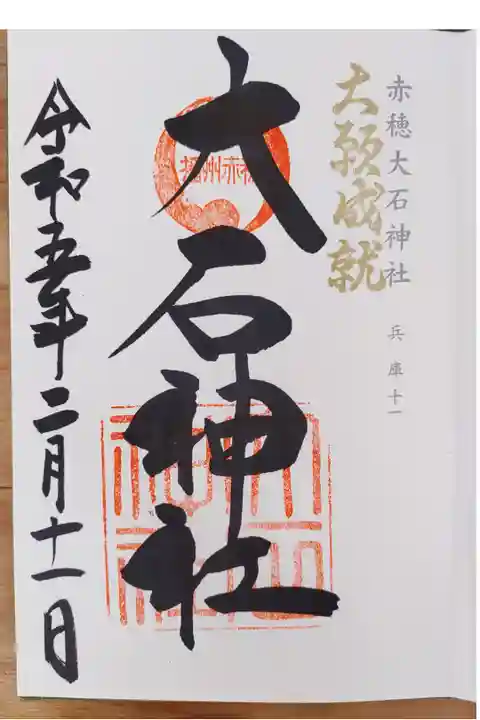 赤穂大石神社 兵庫十一
大願成就
大石神社
播州赤穂
令和五年二月十一日